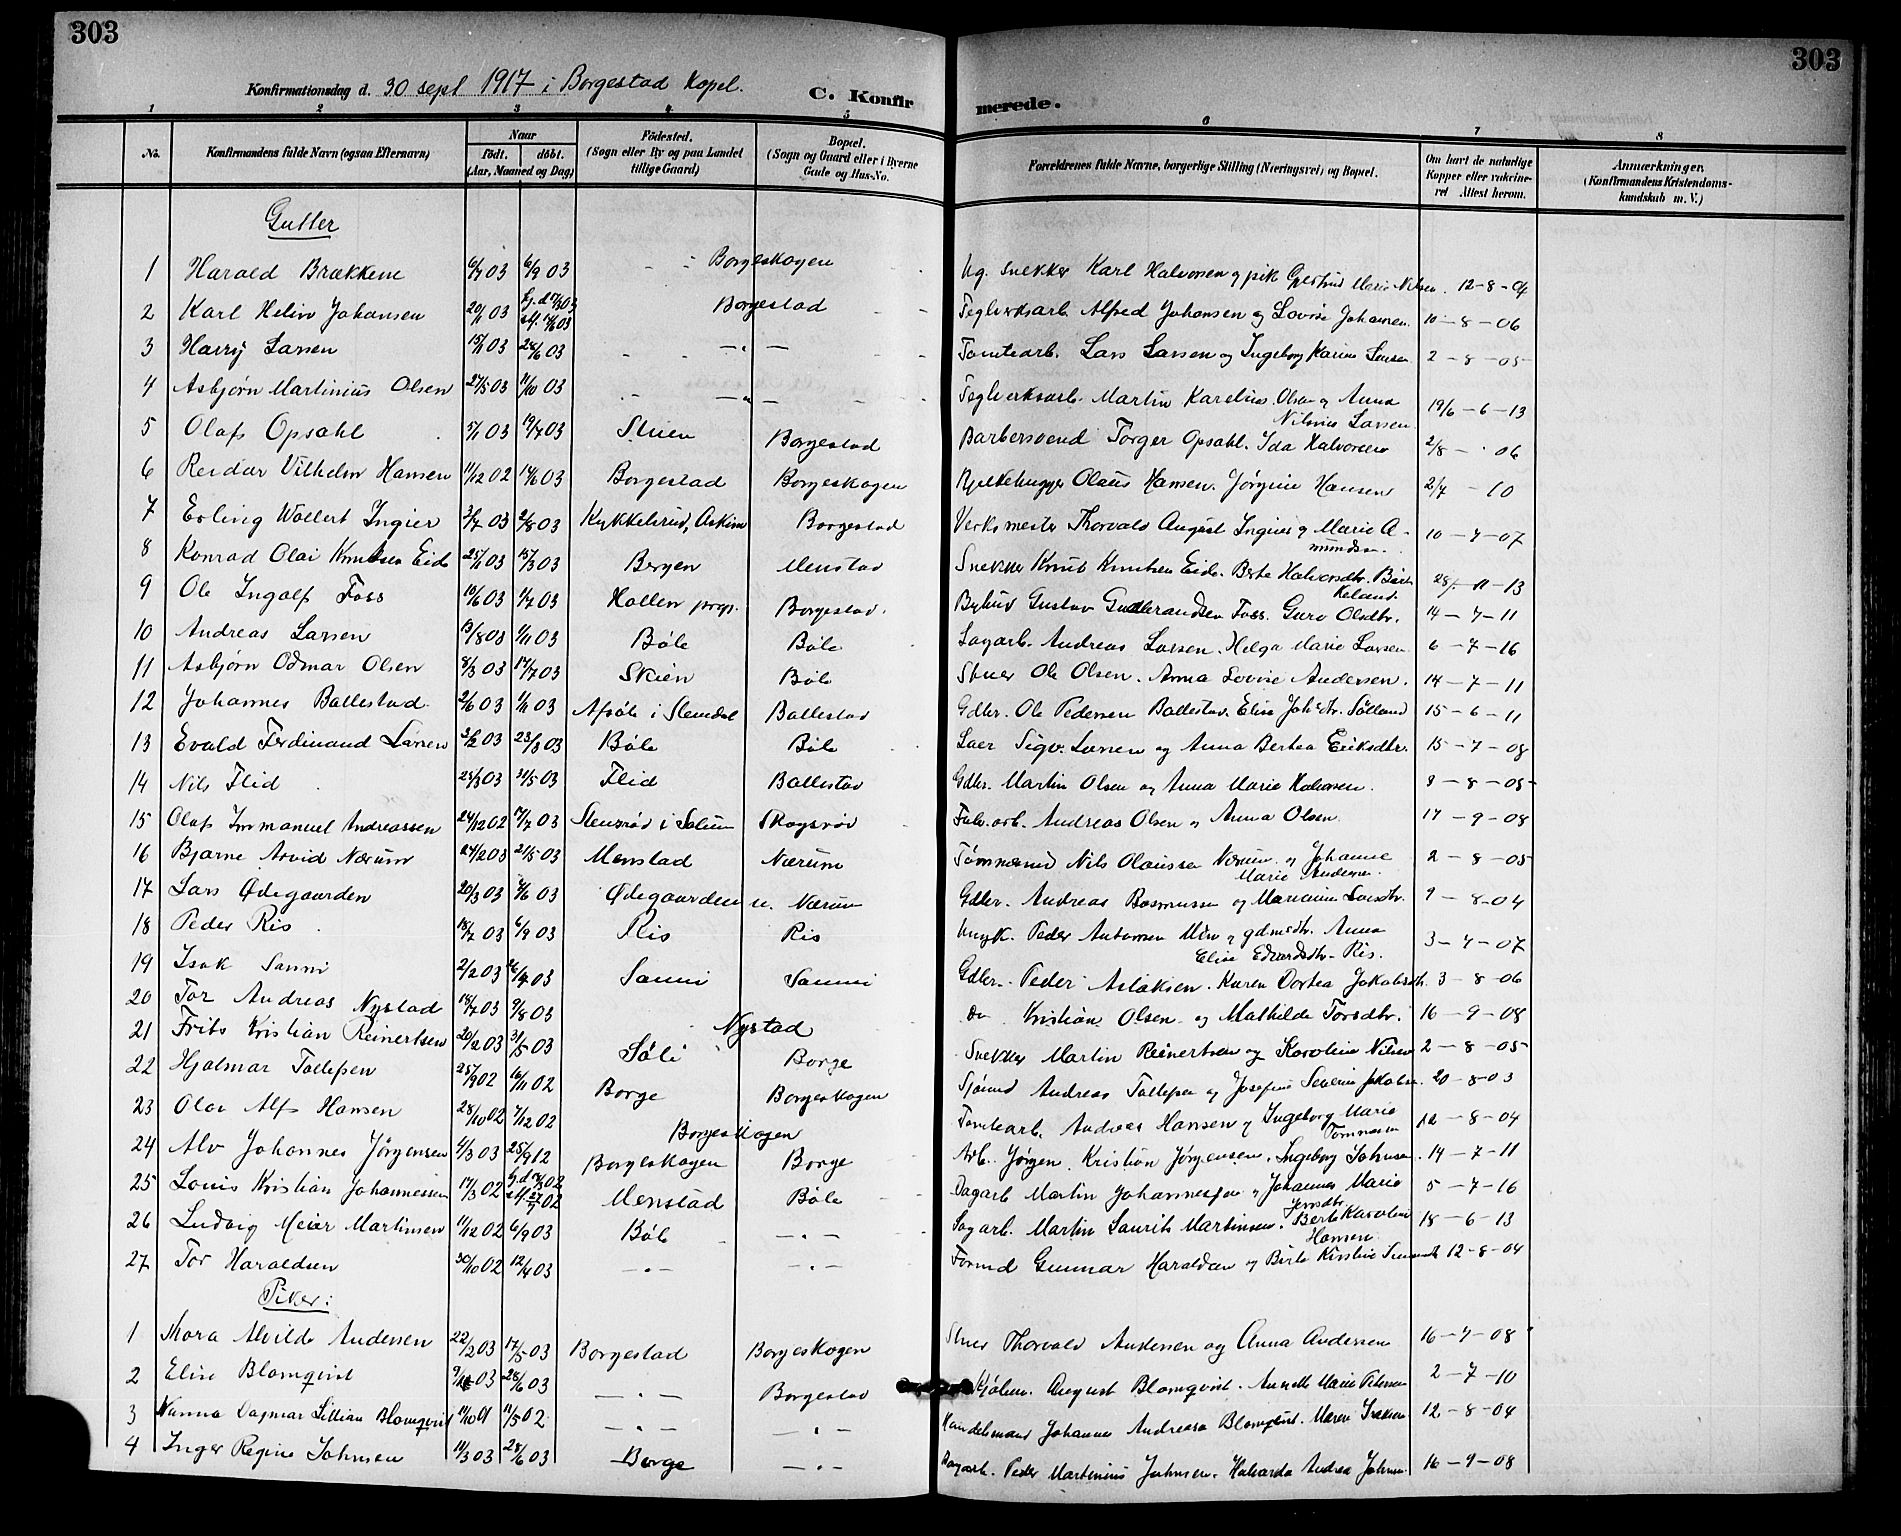 303
303
Konfirmationsdag d. 30 sept 1917 i Borgestad Kapel.
C. Konfir merede.
1 2 3 4 5 6 7 8
No. Konfirmandens fulde Navn (ogsaa Efternavn) Naar Födt. döbt. (Aar, Maaned og Dag) Födested. (Sogn eller By og paa Landet tillige Gaard) Bopæl. (Sogn og Gaard eller i Byerne Gade og Hus-No. Forældrenes fulde Navne, borgerlige Stilling (Næringsvei) og Bopæl. Om havt de naturlige Kopper eller vakcineret Attest herom. Anmærkninger. (Konfirmandens Kristendomskundskab m. V.)
Gutter
1 Harald Brækkene 6/7 03 6/9 03 Borgeskogen Ug. snekker Karl Halvorsen og pike Gjertrud Marie Nilsen. 12-8-04
2 Karl Helim Johansen 20/1 03 Borgestad Teglverksarb. Alfred Johansen og Lovise Johansen. 10-8-06
3 Harry Larsen 15/1 03 28/6 03 — " — Tomtearb. Lars Larsen og Ingeborg Karine Larsen 2-8-05
4 Asbjørn Martinius Olsen 27/5 03 11/10 03 — " — Teglverksarb. Martin Karelius Olsen og Anna Nilsine Larsen 19/6-6-13
5 Olaf Opsahl 5/1 03 19/7 03 Skien Borgestad Barbersvend Torger Opsahl. Ida Halvorsen 2/8 - 06
6 Reidar Vilhelm Hansen 11/12 02 14/6 03 Borgestad Borgeskogen Bjelkehugger Olaus Hansen. Jørgine Hansen 2/7 - 10
7 Erling Wollert Ingier 3/7 03 2/8 03 Kykkelsrud, Askim Borgestad Verksmester Thorvald August Ingier og Marie Amundsen. 10-7-07
8 Konrad Olai Knutsen Eide 25/1 03 15/3 03 Bergen Menstad Snekker Knut Knutsen Eide. Berte Halvorsdtr. 28/-11-13
9 Ole Ingolf Foss 10/6 03 1/7 03 Hollen prgj. Borgestad. Bybud Gustav Gudbrandsen Foss. Guro Olsdtr. 14-7-11
10 Andreas Larsen 13/8 03 1/11 03 Bøle Bøle Sagarb. Andreas Larsen. Helga Marie Larsen 6-7-16
11 Asbjørn Odmar Olsen 8/3 03 17/7 03 Skien Bøle Stuer Ole Olsen. Anna Lovise Andersen. 14-7-11
12 Johannes Ballestad 2/6 03 1/11 03 i Slemdal Ballestad Gdbr. Ole Pedersen Ballestad. Elise Johsdtr. Søtland 15-6-11
13 Evald Ferdinand Larsen 3/2 03 23/3 03 Bøle Bøle Saer Sigv. Larsen og Anna Bertea Eriksdtr. 15-7-08
14 Nils Flid 23/3 03 31/5 03 Flid Ballestad Gdbr. Martin Olsen og Anna Marie Halvorsen. 8-8-05
15 Olaf Immanuel Andreassen 24/12 02 17/7 03 i Solum Skogsrød Fabr. arb. Andreas Olsen og Anna Olsen. 17-9-08
16 Bjarne Arvid Nærum 24/2 03 21/5 03 Menstad Nærum Tømmermd Nils Olaussen Nærum og Johanne Marie Andersen. 2-8-05
17 Lars Ødegaarden 20/3 03 7/6 03 Ødegaarden u. Nærum Gdbr. Andreas Rasmussen og Mariane Larsdtr. 9-8-04
18 Peder Ris 18/7 03 6/9 03 Ris Ris Ungk. Peder Antonsen og gdmsdtr. Anna Elise Edvardsdtr. Ris. 3-7-07
19 Isak Sanni 2/2 03 26/4 03 Sanni Sanni Gdbr. Peder Aslaksen. Karen Dortea Jakobsdtr. 3-8-06
20 Tor Andreas Nystad 18/7 03 9/8 03 Nystad do Kristian Olsen og Mathilde Torsdtr. 16-9-08
21 Frits Kristian Reinertsen 20/2 03 31/5 03 Søli Borge Snekker Martin Reinertsen og Karoline Nilsen 2-8-05
22 Hjalmar Tollefsen 25/9 02 16/11 02 Borge Borgeskogen Sjømd Andreas Tollefsen og Josefine Severine Jakobsen. 20-8-03
23 Olav Alf Hansen 28/10 02 7/12 02 Borgeskogen Tomtearb. Andreas Hansen og Ingeborg Marie Tommesen 12-8-04
24 Alv Johannes Jørgensen 4/3 03 25/9 12 Borgeskogen Borge Arb. Jørgen Kristian Jørgensen. Ingeborg Johnsen. 14-7-11
25 Louis Kristian Johannessen 17/3 02 Menstad Bøle Dagarb. Martin Johannessen og Johannes Marie Jensdtr. 5-7-16
26 Ludvig Meier Martinsen 11/12 02 6/9 03 Bøle — " — Sagarb. Martin Laurits Martinsen. Berte Karoline Hansen. 18-6-13
27 Tor Haraldsen 30/10 02 12/4 03 — " — — " — Formd Gunnar Haraldsen og Berte Kirstine 12-8-04
Piker:
1 Thora Alvilde Andersen 22/2 03 17/5 03 Borgestad Borgeskogen Stuer Thorvald Andersen og Anna Andersen 16-9-08
2 Elise Blomqvist 28/6 03 — " — Borgestad August Blomqvist. Annette Marie Petersen 2-7-10
3 Nanna Dagmar Lillian Blomqvist 11/10 01 11/5 02 — " — — " — Handelsmand Johannes Andreas Blomqvist. Maren Isaksen 12-8-04
4 Inger Regine Johnsen 11/3 03 28/6 03 Borge — " — Dagarb. Peder Martinius Johnsen. Halvarda Andrea Johnsen 16-9-08